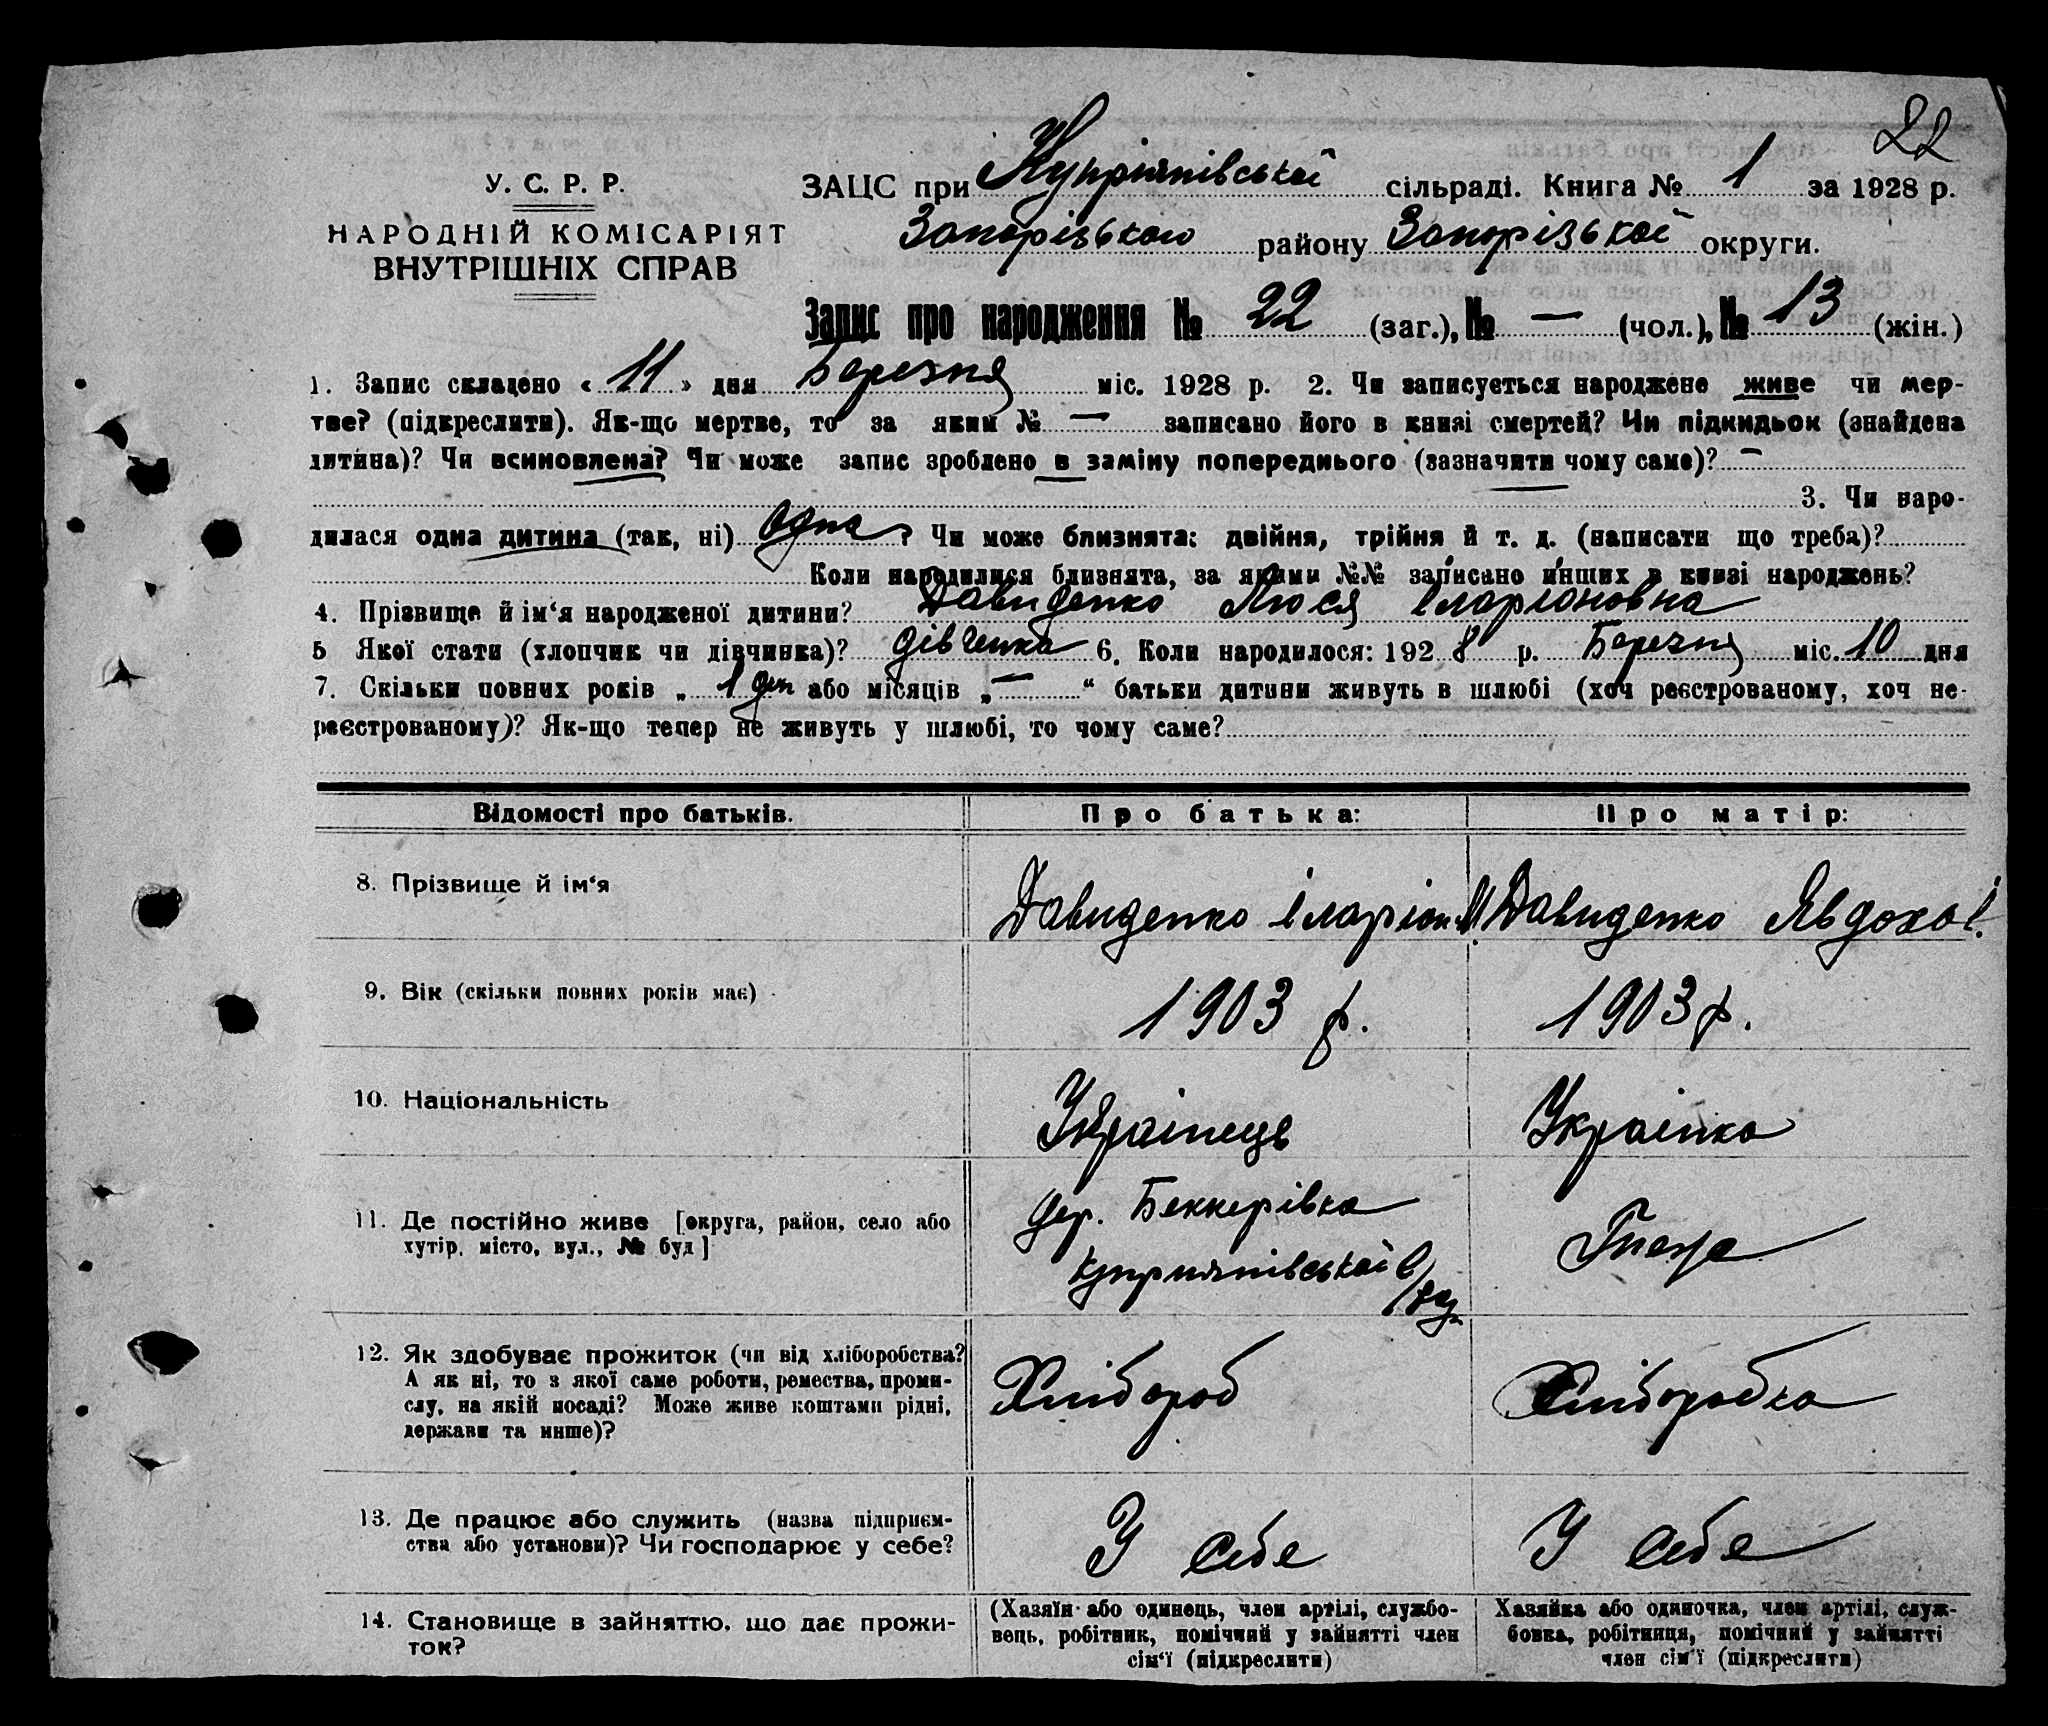 22
У. С. Р. Р.
НАРОДНІЙ КОМІСАРІЯТ
ВНУТРІШНІХ СПРАВ
ЗАЦС при Купріянівської сільраді. Книга № 1 за 1928 р.
Запорізького району Запорізької округи.
Запис про народження № 22 (заг.), № — (чол.), № 13 (жін.)
1. Запис складено « 11 » дня Березня міс. 1928 р. 2. Чи записується народжене живе чи мер-
тве? (підкреслити). Як-що мертве, то за яким № — записано його в книзі смертей? Чи підкидьок (знайдена
дитина)? Чи всиновлена? Чи може запис зроблено в заміну попереднього (зазначити чому саме)? —
3. Чи наро-
дилася одна дитина (так, ні) Одна ? Чи може близнята: двійня, трійня й т. д. (написати що треба)?
Коли народилися близнята, за якими №№ записано инших в книзі народжень?
4. Прізвище й ім‘я народженої дитини? Давиденко Люся Іларіоновна
5 Якої стати (хлопчик чи дівчинка)? дівченка 6. Коли народилося: 192 8 р. Березня міс. 10 дня
7. Скільки повних років „ 1 або місяців „ — “ батьки дитини живуть в шлюбі (хоч реєстрованому, хоч не-
реєстрованому)? Як-що тепер не живуть у шлюбі, то чому саме?
Відомості про батьків. Про батька: Про матір:
8. Прізвище й ім‘я Давиденко Іларіон М. Давиденко Явдоха І.
9. Вік (скільки повних років має) 1903 р. 1903 р.
10. Національність Українець Українка
11. Де постійно живе [округа, район, село або
хутір, місто, вул., № буд]
дер. Беккерівка
Куприянівської с/рад.
Теж
12. Як здобуває прожиток (чи від хліборобства?
А як ні, то з якої саме роботи, ремества, проми-
слу, на якій посаді? Може живе коштами рідні,
держави та инше)?
Хлібороб Хліборобка
13. Де працює або служить (назва підприєм-
ства або установи)? Чи господарює у себе?
У себе У себе
14. Становище в зайняттю, що дає прожи-
ток?
(Хазяїн або одинець, член артілі, службо-
вець, робітник, помічний у зайнятті член
сім‘ї (підкреслити)
Хазяйка або одиночка, член артілі, служ-
бовка, робітниця, помічний у зайнятті
член сім‘ї (підкреслити)